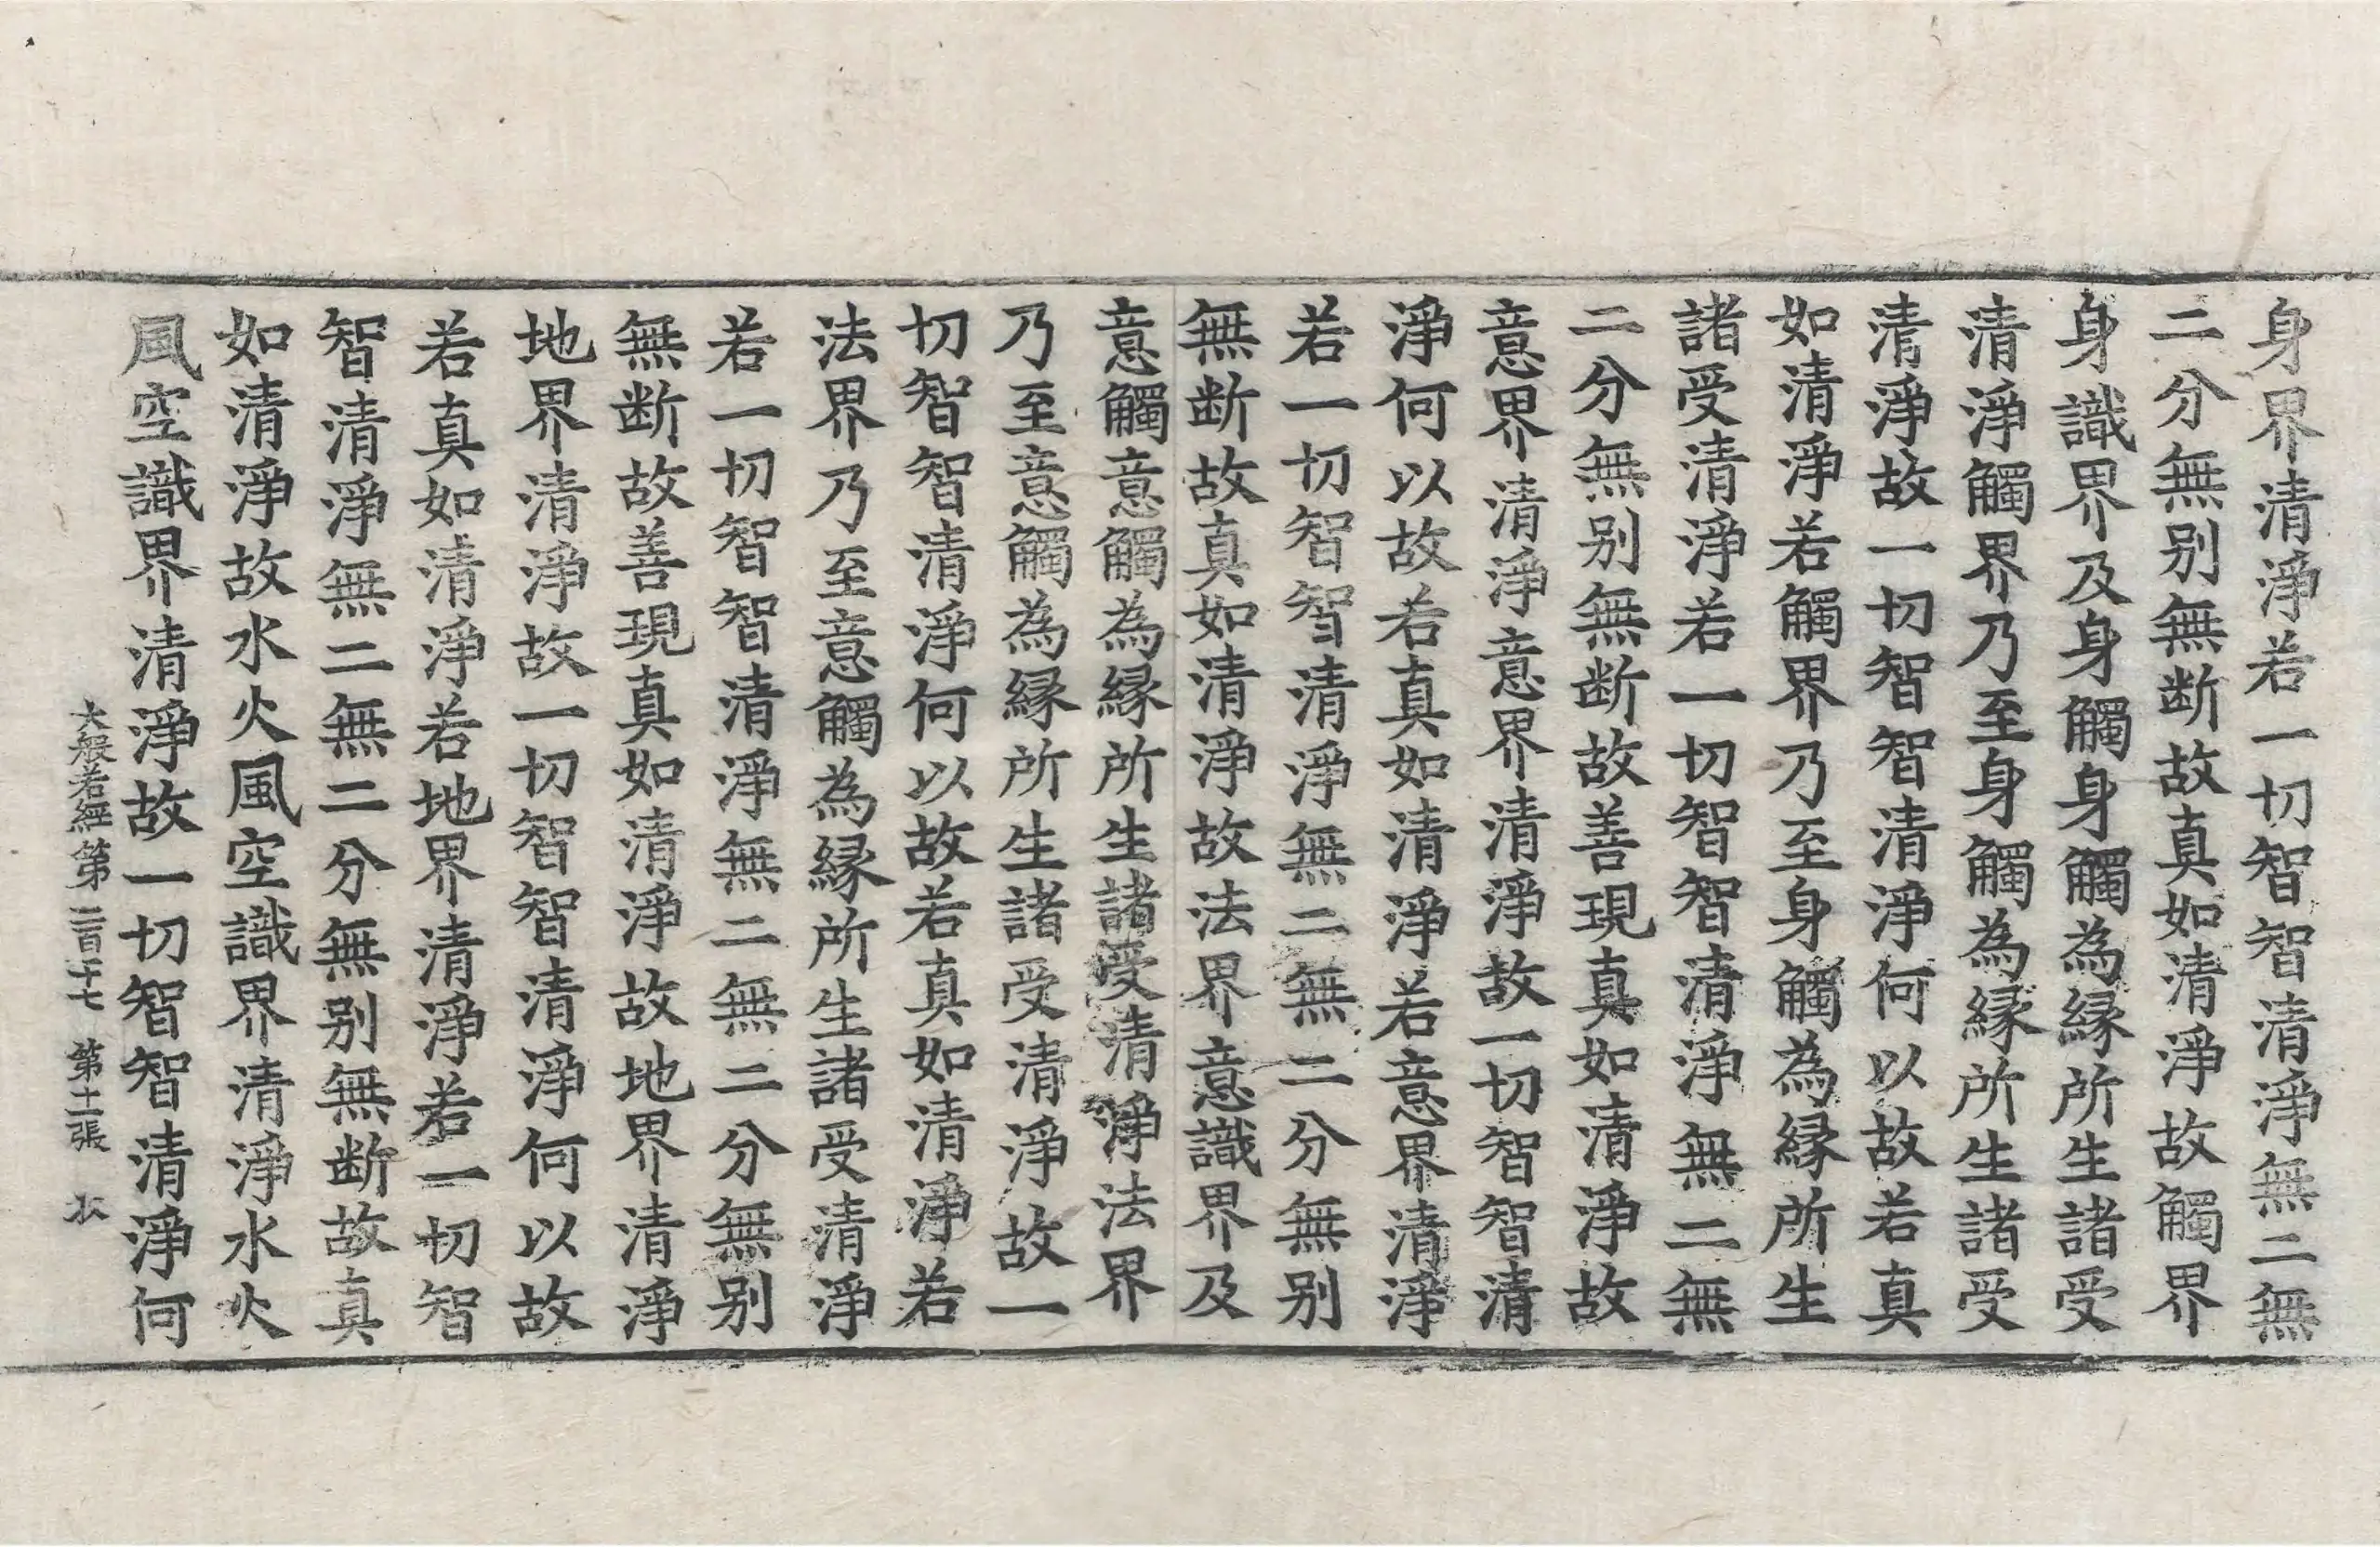 身界清淨若一切智智清淨無二無
二分無别無断故真如清淨故觸界
身識界及身觸身觸為縁所生諸受
清淨觸界乃至身觸為縁所生諸受
清淨故一切智智清淨何以故若真
如清淨若觸界乃至身觸為縁所生
諸受清淨若一切智智清淨無二無
二分無别無断故善現真如清淨故
意界清淨意界清淨故一切智智清
淨何以故若真如清淨若意界清淨
若一切智智清淨無二無二分無别
無断故真如清淨故法界意識界及
意觸意觸為縁所生諸受清淨法界
乃至意觸為縁所生諸受清淨故一
切智智清淨何以故若真如清淨若
法界乃至意觸為縁所生諸受清淨
若一切智智清淨無二無二分無别
無断故善現真如清淨故地界清淨
地界清淨故一切智智清淨何以故
若真如清淨若地界清淨若一切智
智清淨無二無二分無别無断故真
如清淨故水火風空識界清淨水火
風空識界清淨故一切智智清淨何
大般若經第二百一十七 第十二張 收